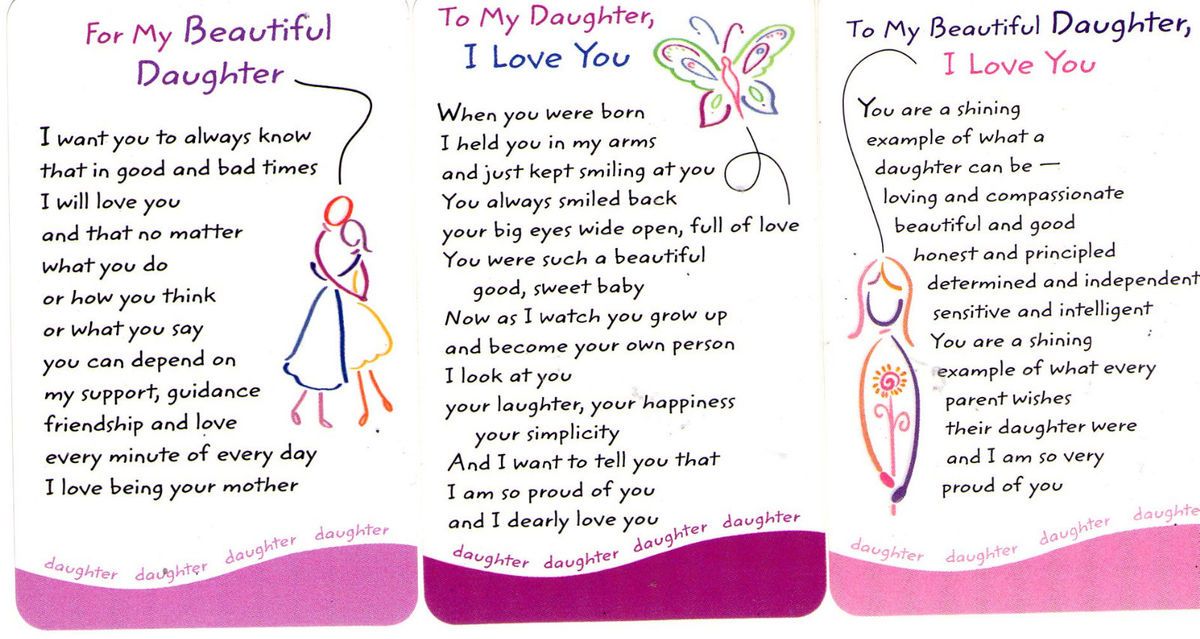 For My Beautiful
Daughter
I want you to always know
that in good and bad times
I will love you
and that no matter
what you do
or how you think
or what you say
you can depend on
my support, guidance
friendship and love
every minute of every day
I love being your mother
daughter daughter daughter daughter
To My Daughter,
I Love You
When you were born
I held you in my arms
and just kept smiling at you
You always smiled back
your big eyes wide open, full of love
You were such a beautiful
good, sweet baby
Now as I watch you grow up
and become your own person
I look at you
your laughter, your happiness
your simplicity
And I want to tell you that
I am so proud of you
and I dearly love you
daughter daughter daughter daughter
To My Beautiful Daughter,
I Love You
You are a shining
example of what a
daughter can be —
loving and compassionate
beautiful and good
honest and principled
determined and independent
sensitive and intelligent
You are a shining
example of what every
parent wishes
their daughter were
and I am so very
proud of you
daughter daughter daughter daughter